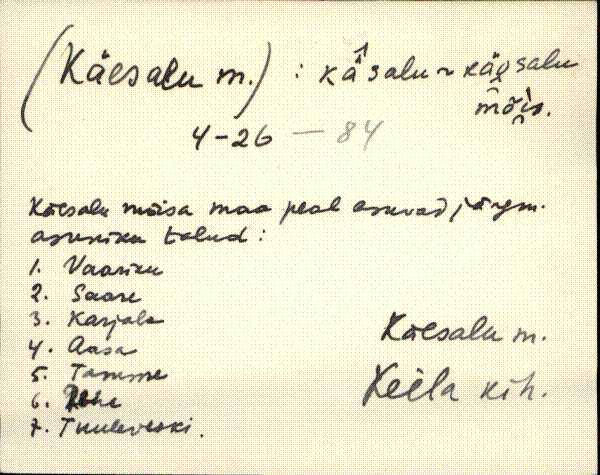 (Käesalu m.) : kä̂salu ~ käesalu
mõis.
4-26 — 84
Käesalu mõisa maa peal asuvad järgm.
asuniku talud:
1. Vaariku
2. Saare
3. Karjala
4. Aasa
5. Tamme
6.
7. Tuuleveski.
Käesalu m.
Keila kih.